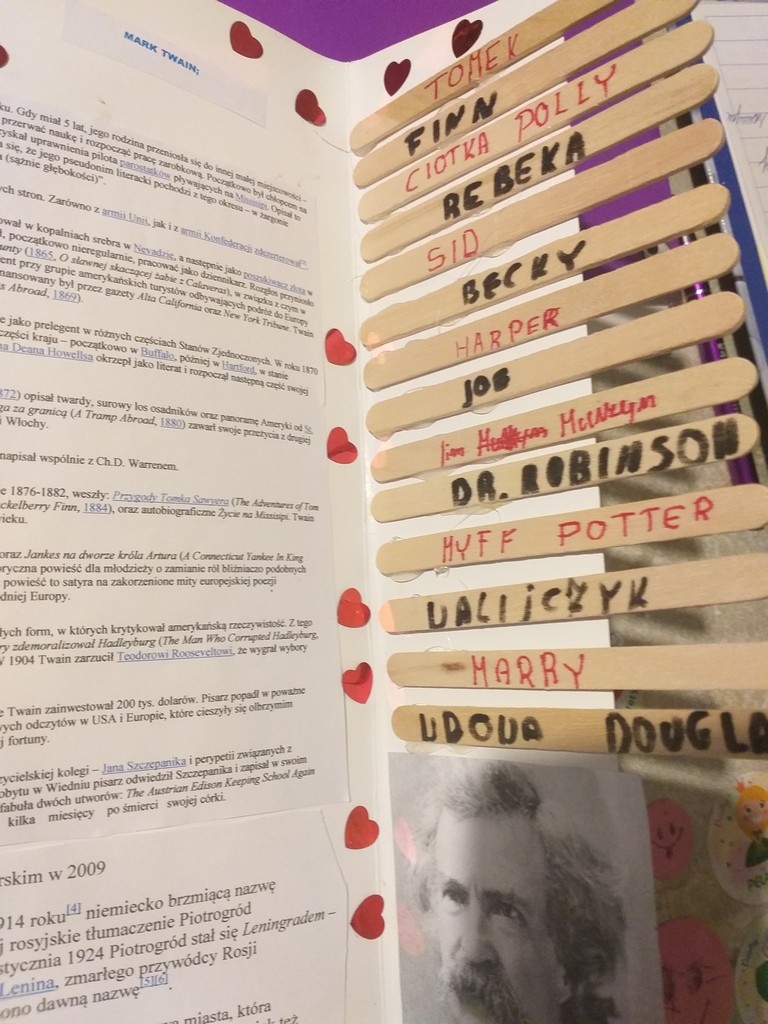 MARK TWAIN;
ku. Gdy miał 5 lat, jego rodzina przeniosła się do innej małej miejscowości –
przerwać naukę i rozpocząć pracę zarobkową. Początkowo był chłopcem na
yskał uprawnienia pilota parostatków pływających na Missisipi. Opisał to
a się, że jego pseudonim literacki pochodzi z tego okresu – w żargonie
(sążnie głębokości)".
ych stron. Zarówno z armii Unii, jak i z armii Konfederacji zdezerterował
ował w kopalniach srebra w Nevadzie, a następnie jako poszukiwacz złota w
l, początkowo nieregularnie, pracować jako dziennikarz. Rozgłos przyniosło
unty (1865, O sławnej skaczącej żabie z Calaveras), w związku z czym w
ent przy grupie amerykańskich turystów odbywających podróż do Europy
nansowany był przez gazety Alta California oraz New York Tribune. Twain
s Abroad, 1869).
e jako prelegent w różnych częściach Stanów Zjednoczonych. W roku 1870
części kraju – początkowo w Buffalo, później w Hartford, w stanie
na Deana Howellsa okrzepł jako literat i rozpoczął następną część swojej
872) opisał twardy, surowy los osadników oraz panoramę Ameryki od
ga za granicą (A Tramp Abroad, 1880) zawarł swoje przeżycia z drugiej
i Włochy.
napisał wspólnie z Ch.D. Warrenem.
e 1876-1882, weszły: Przygody Tomka Sawyera (The Adventures of Tom
ckelberry Finn, 1884), oraz autobiograficzne Życie na Missisipi. Twain
ieku.
oraz Jankes na dworze króla Artura (A Connecticut Yankee In King
ryczna powieść dla młodzieży o zamianie ról bliźniaczo podobnych
powieść to satyra na zakorzenione mity europejskiej poezji
dniej Europy.
łych form, w których krytykował amerykańską rzeczywistość. Z tego
ry zdemoralizował Hadleyburg (The Man Who Corrupted Hadleyburg,
W 1904 Twain zarzucił Teodorowi Rooseveltowi, że wygrał wybory
e Twain zainwestował 200 tys. dolarów. Pisarz popadł w poważne
wych odczytów w USA i Europie, które cieszyły się olbrzymim
j fortuny.
zycielskiej kolegi – Jana Szczepanika i perypetii związanych z
obytu w Wiedniu pisarz odwiedził Szczepanika i zapisał w swoim
fabuła dwóch utworów: The Austrian Edison Keeping School Again
kilka miesięcy po śmierci swojej córki.
rskim w 2009
914 roku[4] niemiecko brzmiącą nazwę
j rosyjskie tłumaczenie Piotrogród
stycznia 1924 Piotrogród stał się Leningradem –
Lenina, zmarłego przywódcy Rosji
ono dawną nazwę[5][6]
miasta, która
TOMEK
FINN
CIOTKA POLLY
REBEKA
SID
BECKY
HARPER
JOE
Jim
DR. ROBINSON
MYFF POTTER
WALIJCZYK
MARRY
WDOWA DOUGLA